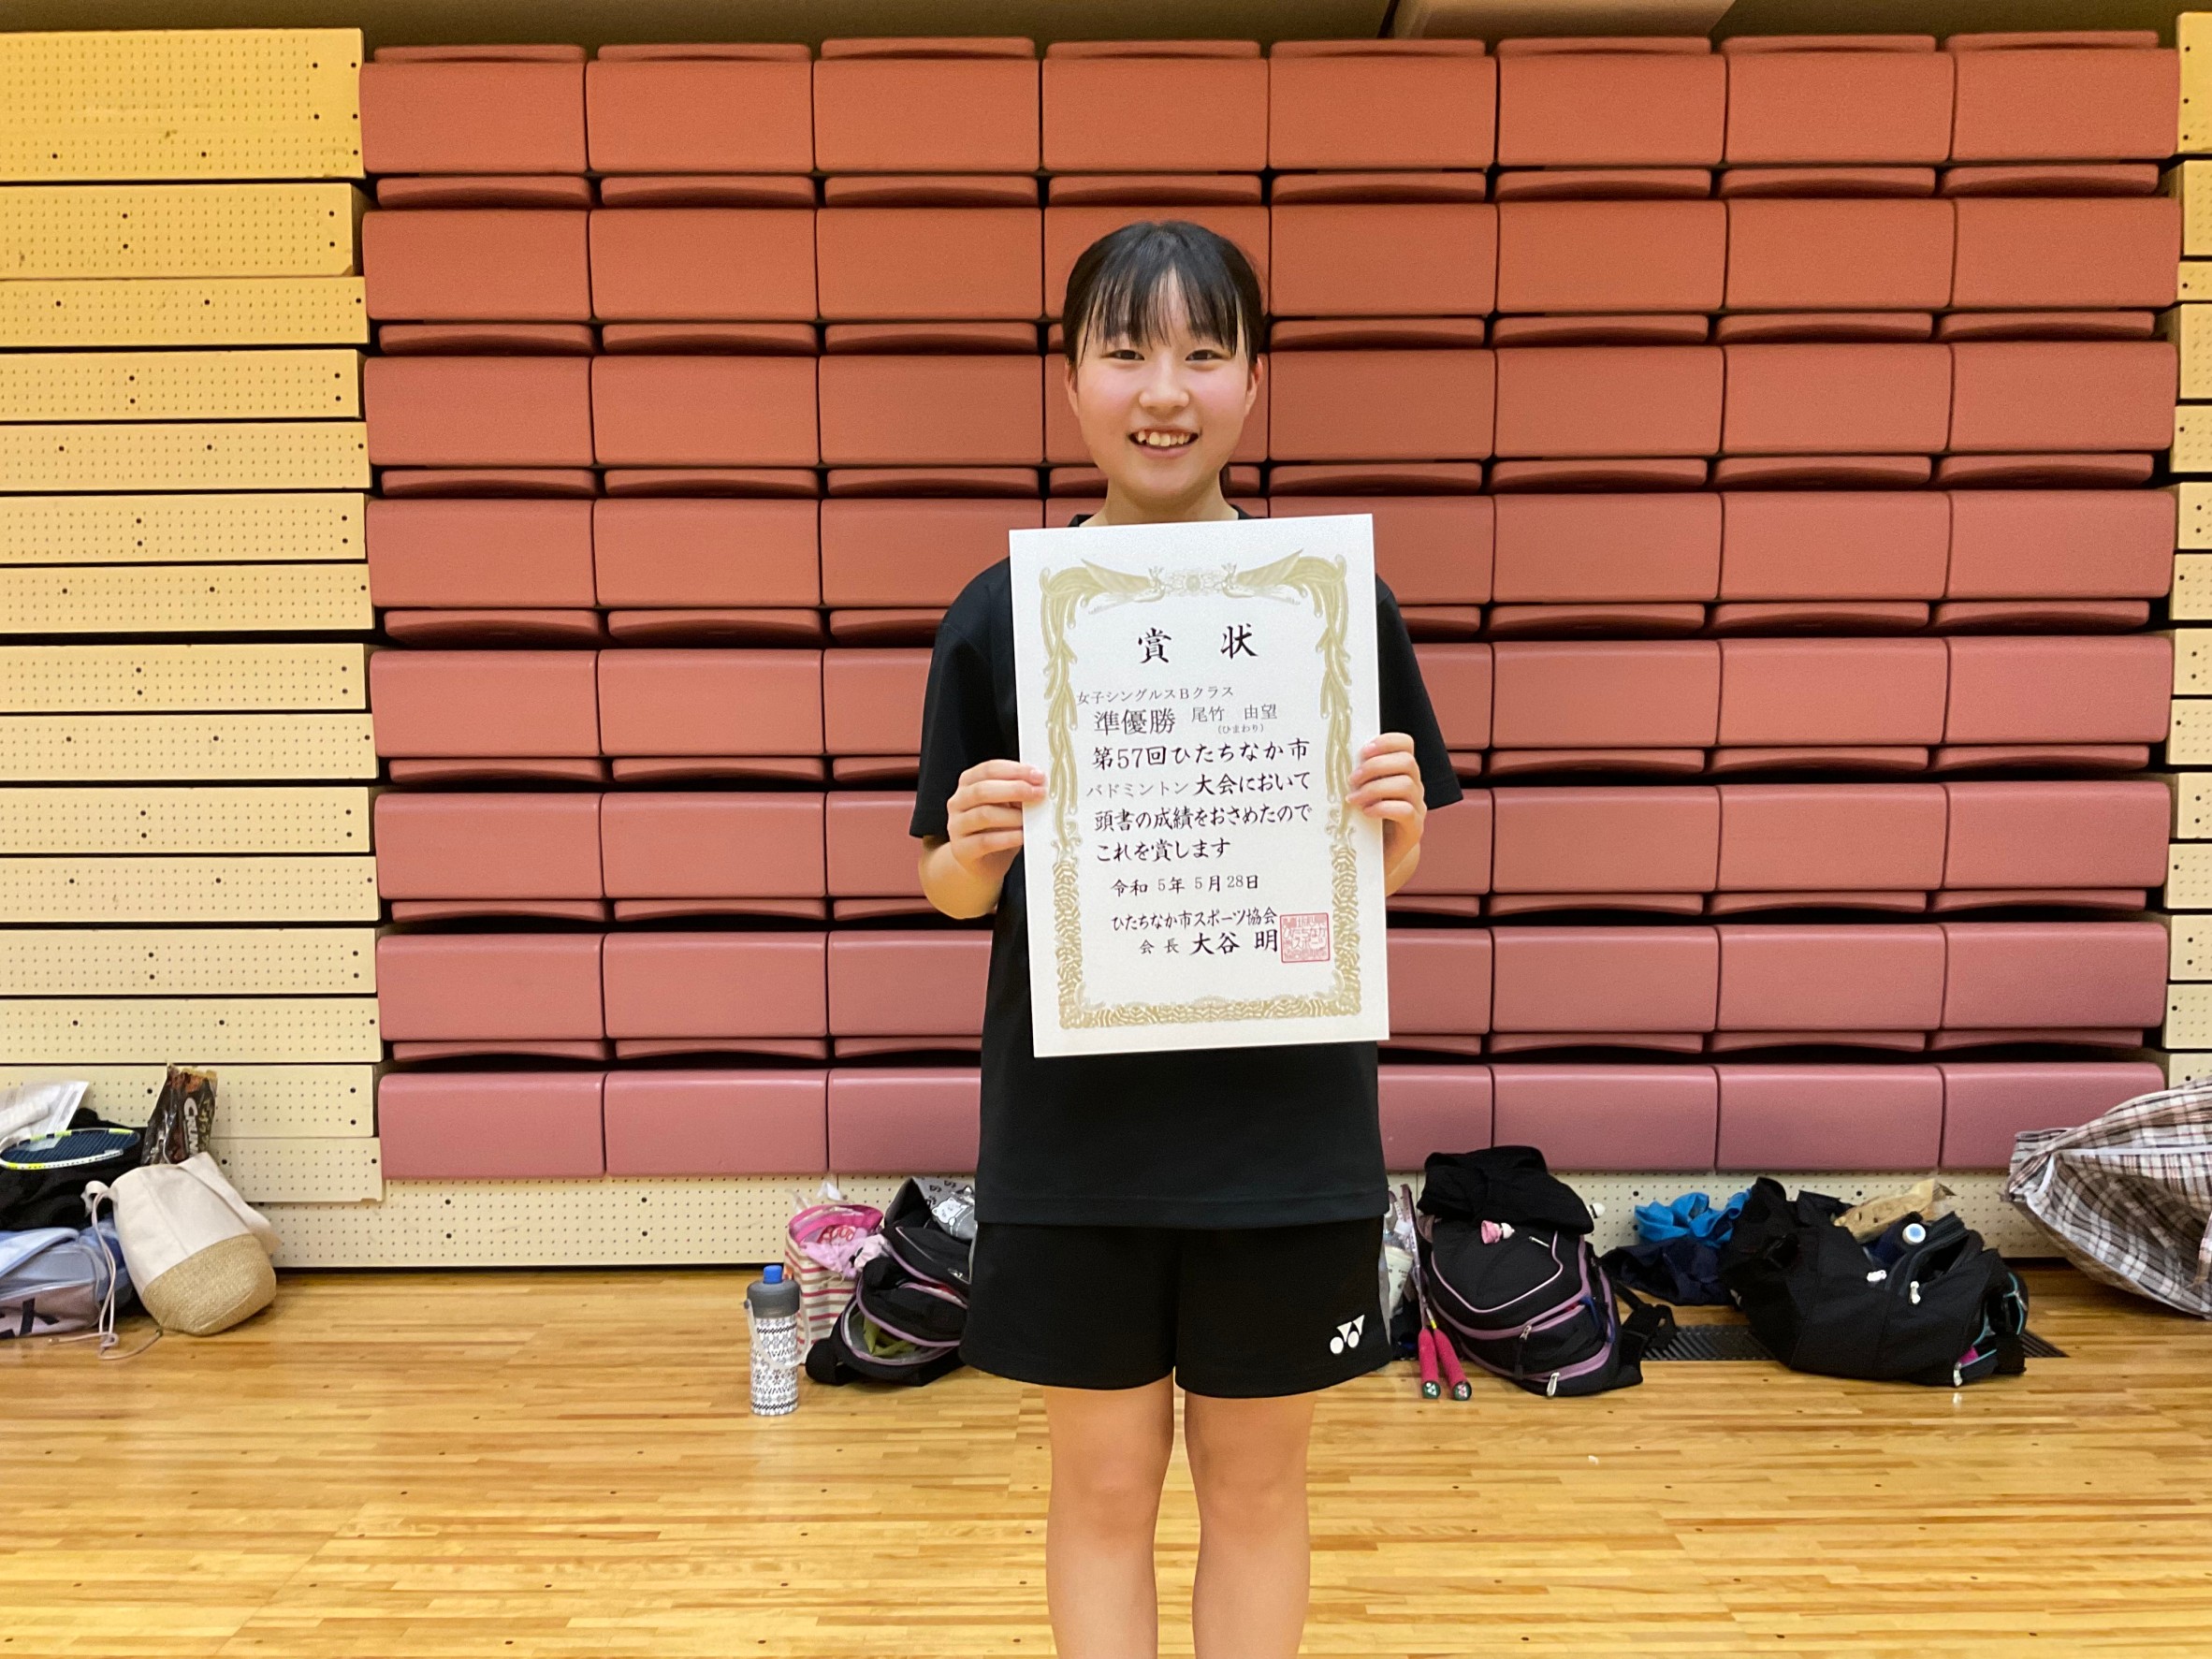 賞 状
女子シングルスBクラス
準優勝 尾竹 由望
(ひまわり)
第57回ひたちなか市
バドミントン大会において
頭書の成績をおさめたので
これを賞します
令和 5年 5月 28日
ひたちなか市スポーツ協会
会長 大谷 明